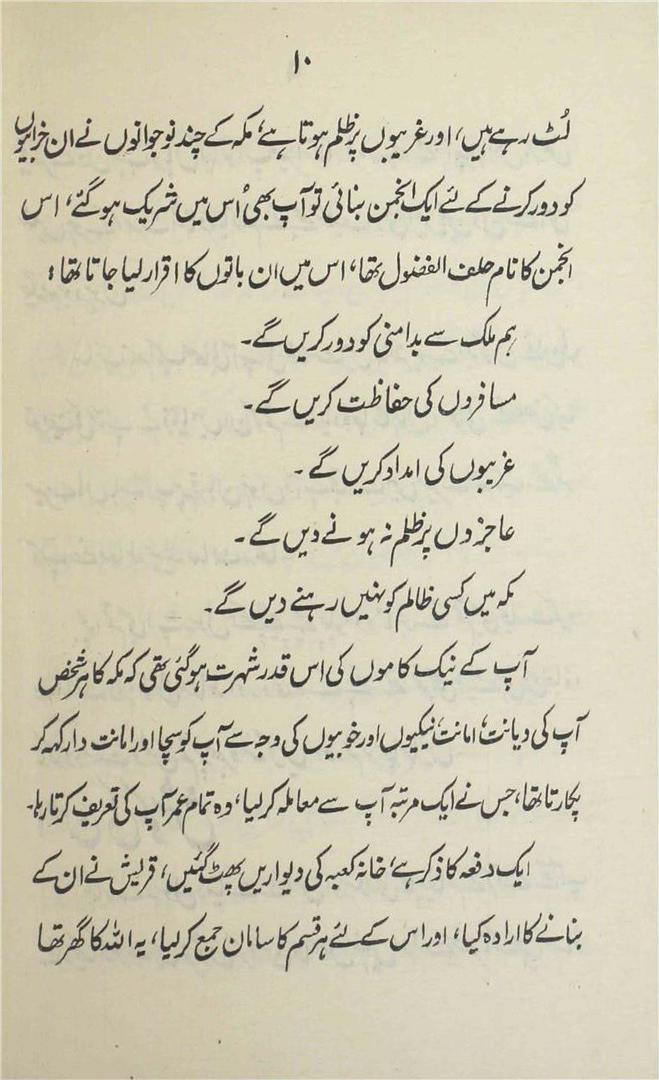 ۱۰
لُٹ رہے ہیں، اور غریبوں پر ظلم ہوتا ہے، مکہ کے چند نوجوانوں نے ان خرابیوں
کو دور کرنے کے لئے ایک انجمن بنائی تو آپ بھی اُس میں شریک ہو گئے، اس
انجمن کا نام حلف الفضول تھا، اس میں ان باتوں کا اقرار لیا جاتا تھا:
ہم ملک سے بدامنی کو دور کریں گے۔
مسافروں کی حفاظت کریں گے۔
غریبوں کی امداد کریں گے۔
عاجزوں پر ظلم نہ ہونے دیں گے۔
مکہ میں کسی ظالم کو نہیں رہنے دیں گے۔
آپ کے نیک کاموں کی اس قدر شہرت ہو گئی تھی کہ مکہ کا ہر شخص
آپ کی دیانت، امانت، نیکیوں اور خوبیوں کی وجہ سے آپ کو سچا اور امانت دار کہہ کر
پکارتا تھا، جس نے ایک مرتبہ آپ سے معاملہ کر لیا، وہ تمام عمر آپ کی تعریف کرتا رہا۔
ایک دفعہ کا ذکر ہے، خانہ کعبہ کی دیواریں پھٹ گئیں، قریش نے ان کے
بنانے کا ارادہ کیا، اور اس کے لئے ہر قسم کا سامان جمع کر لیا، یہ اللہ کا گھر تھا